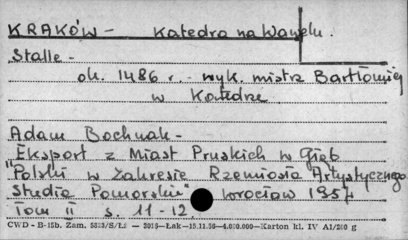 KRAKÓW - Katedra na Wawelu.
Stalle -
ok. 1486 r. - wyk. mistrz Bartłomiej
w Katedrze
Adam Bochnak -
Eksport z Miast Pruskich w Głąb
"Polski w zakresie Rzemiosła Artystycznego
Studia Pomorskie" Wrocław 1957
Tom II s. 11-12
CWD - B-15b. Zam. 5813/S/Li - 3019-Łak-15.11.56-4.000.000-Karton kl. IV A1/200 g